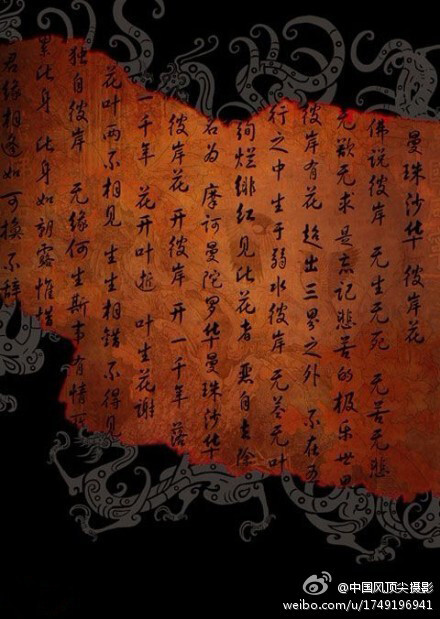 曼珠沙华 彼岸花
佛说彼岸 无生无死 无苦无悲
无欲无求 是忘记悲苦的极乐世界
彼岸有花 超出三界之外 不在五
行之中 生于弱水彼岸 无茎无叶
绚烂绯红 见此花者 恶自去除
名为 摩诃曼陀罗华曼珠沙华
彼岸花 开彼岸 开一千年 落
一千年 花开叶逝 叶生花谢
花叶两不相见 生生相错 不得见
独自彼岸 无缘何生斯世 有情
累此身 此身如朝露惟惜
君缘相逢如可换不辞
@中国风顶尖摄影
weibo.com/u/1749196941